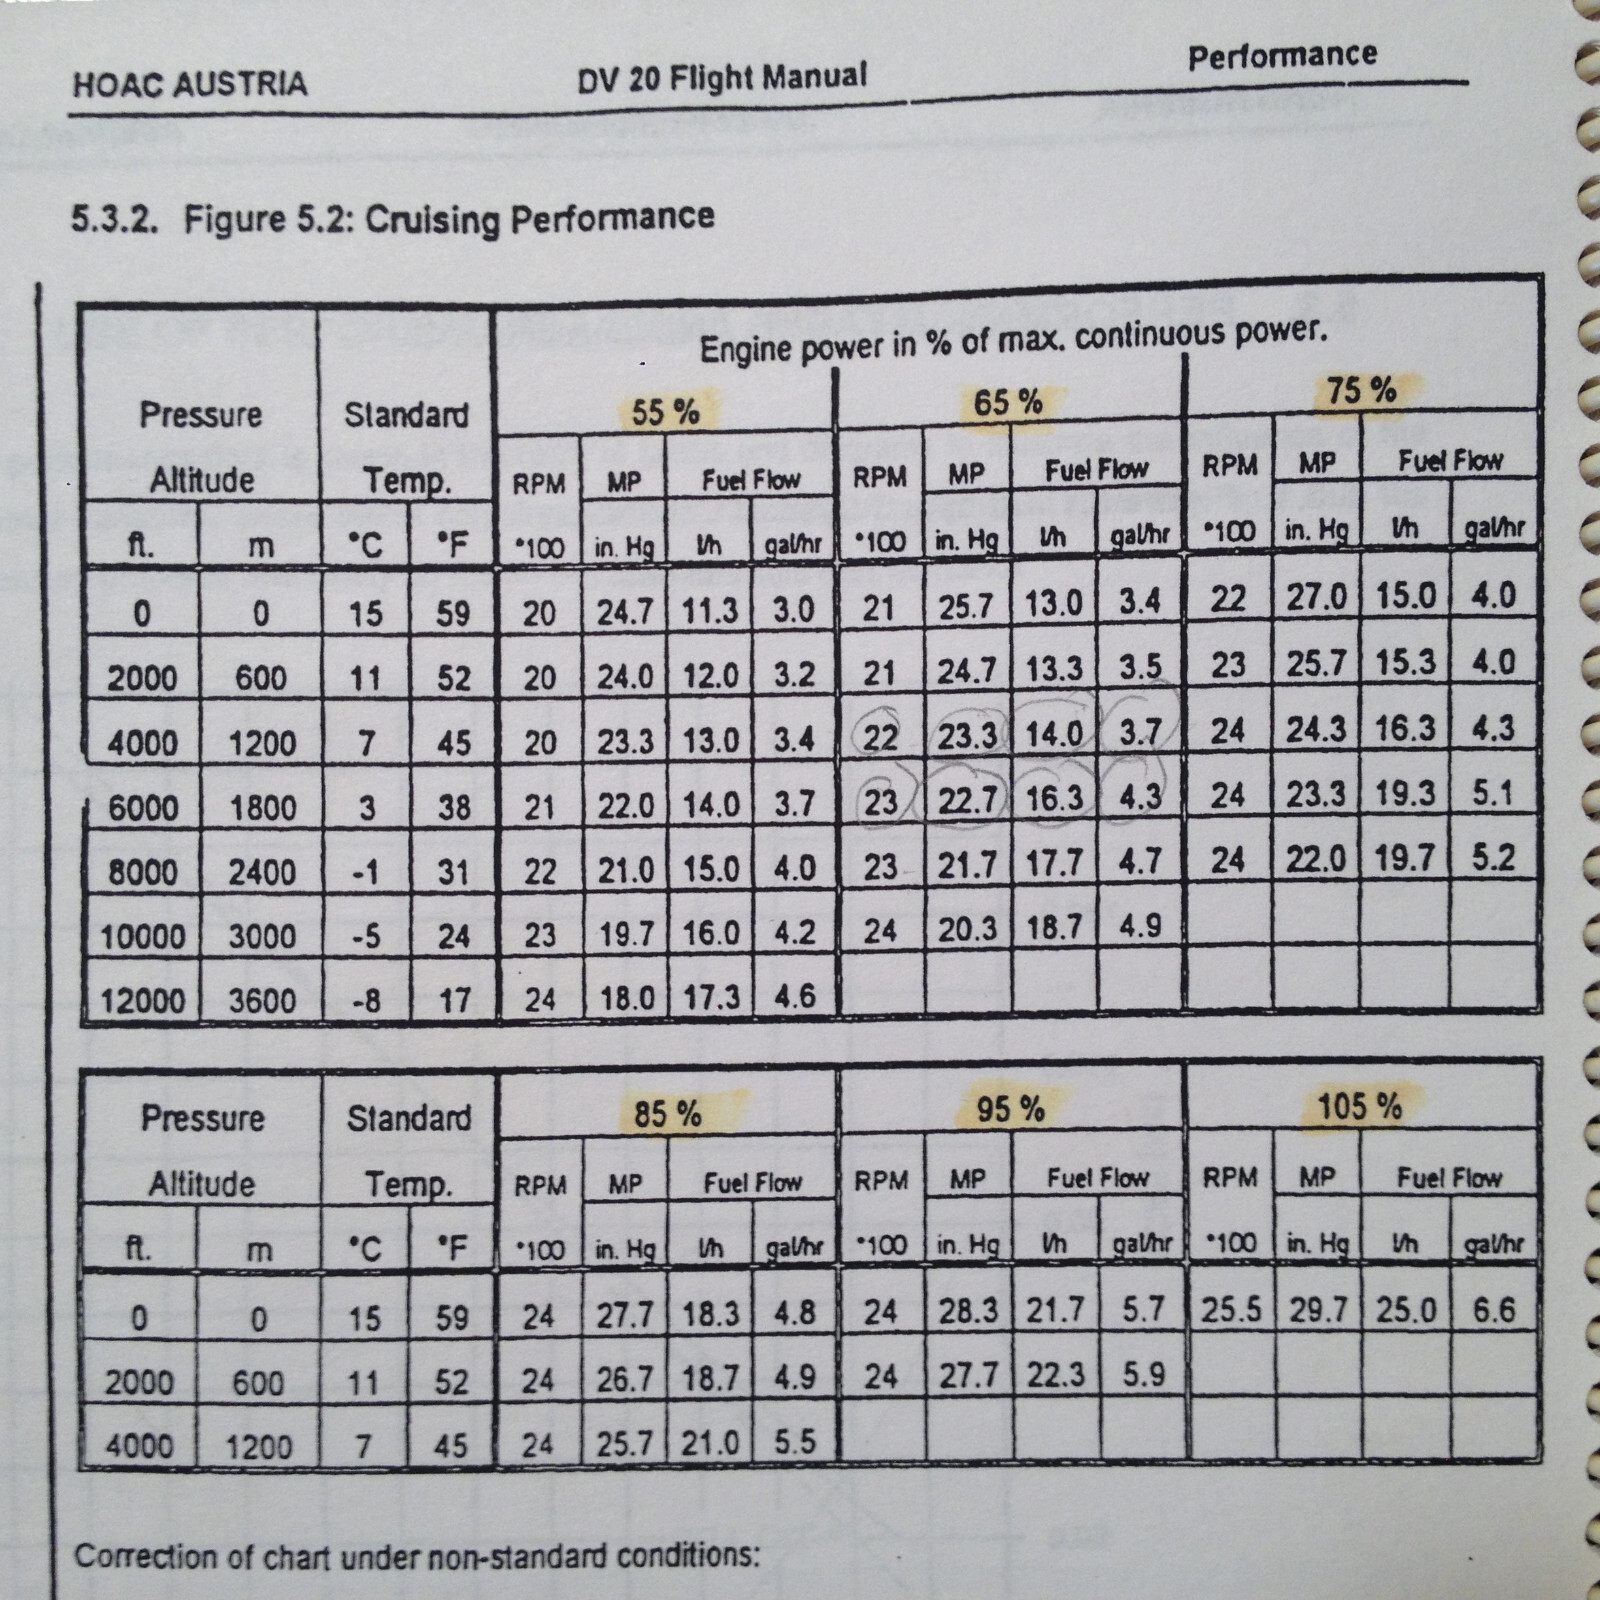 HOAC AUSTRIA DV 20 Flight Manual Performance
5.3.2. Figure 5.2: Cruising Performance
Engine power in % of max. continuous power.
Pressure Standard 55 % 65 % 75 %
Altitude Temp. RPM MP Fuel Flow RPM MP Fuel Flow RPM MP Fuel Flow
ft. m °C °F *100 in. Hg l/h gal/hr *100 in. Hg l/h gal/hr *100 in. Hg l/h gal/hr
0 0 15 59 20 24.7 11.3 3.0 21 25.7 13.0 3.4 22 27.0 15.0 4.0
2000 600 11 52 20 24.0 12.0 3.2 21 24.7 13.3 3.5 23 25.7 15.3 4.0
4000 1200 7 45 20 23.3 13.0 3.4 22 23.3 14.0 3.7 24 24.3 16.3 4.3
6000 1800 3 38 21 22.0 14.0 3.7 23 22.7 16.3 4.3 24 23.3 19.3 5.1
8000 2400 -1 31 22 21.0 15.0 4.0 23 21.7 17.7 4.7 24 22.0 19.7 5.2
10000 3000 -5 24 23 19.7 16.0 4.2 24 20.3 18.7 4.9
12000 3600 -8 17 24 18.0 17.3 4.6
Pressure Standard 85 % 95 % 105 %
Altitude Temp. RPM MP Fuel Flow RPM MP Fuel Flow RPM MP Fuel Flow
ft. m °C °F *100 in. Hg l/h gal/hr *100 in. Hg l/h gal/hr *100 in. Hg l/h gal/hr
0 0 15 59 24 27.7 18.3 4.8 24 28.3 21.7 5.7 25.5 29.7 25.0 6.6
2000 600 11 52 24 26.7 18.7 4.9 24 27.7 22.3 5.9
4000 1200 7 45 24 25.7 21.0 5.5
Correction of chart under non-standard conditions: